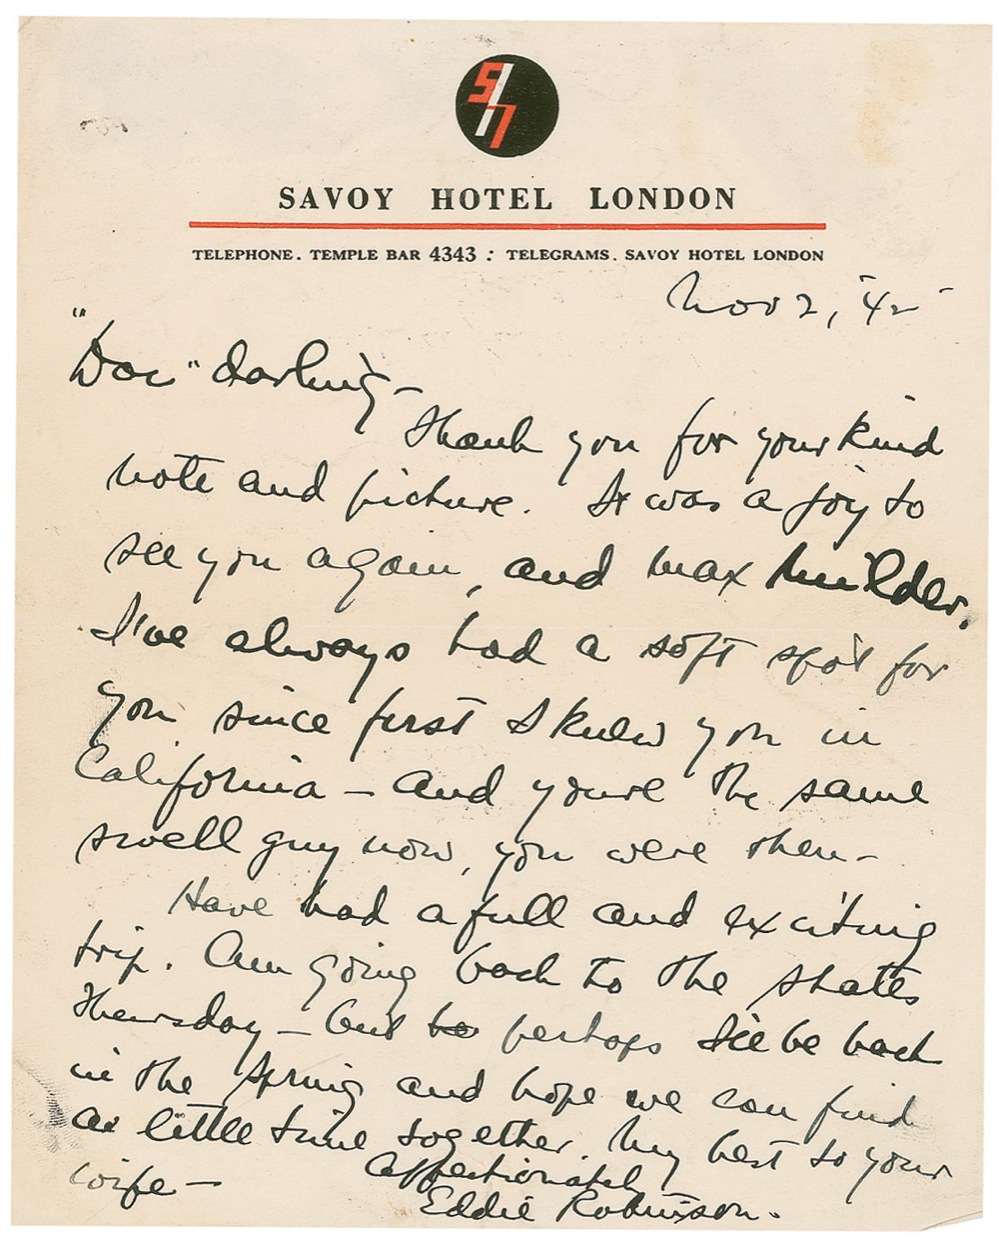 SAVOY HOTEL LONDON
TELEPHONE. TEMPLE BAR 4343 : TELEGRAMS. SAVOY HOTEL LONDON
Nov 2, "42"
"Doc" darling -
Thank you for your kind
note and picture. It was a joy to
see you again, and Max Milder.
I've always had a soft spot for
you since first I knew you in
California - and youre the same
swell guy now, you were then -
Have had a full and exciting
trip. Am going back to the States
Thursday - but perhaps I'll be back
in the Spring and hope we can find
a little time together. My best to your
wife -
Affectionately
Eddie Robinson.